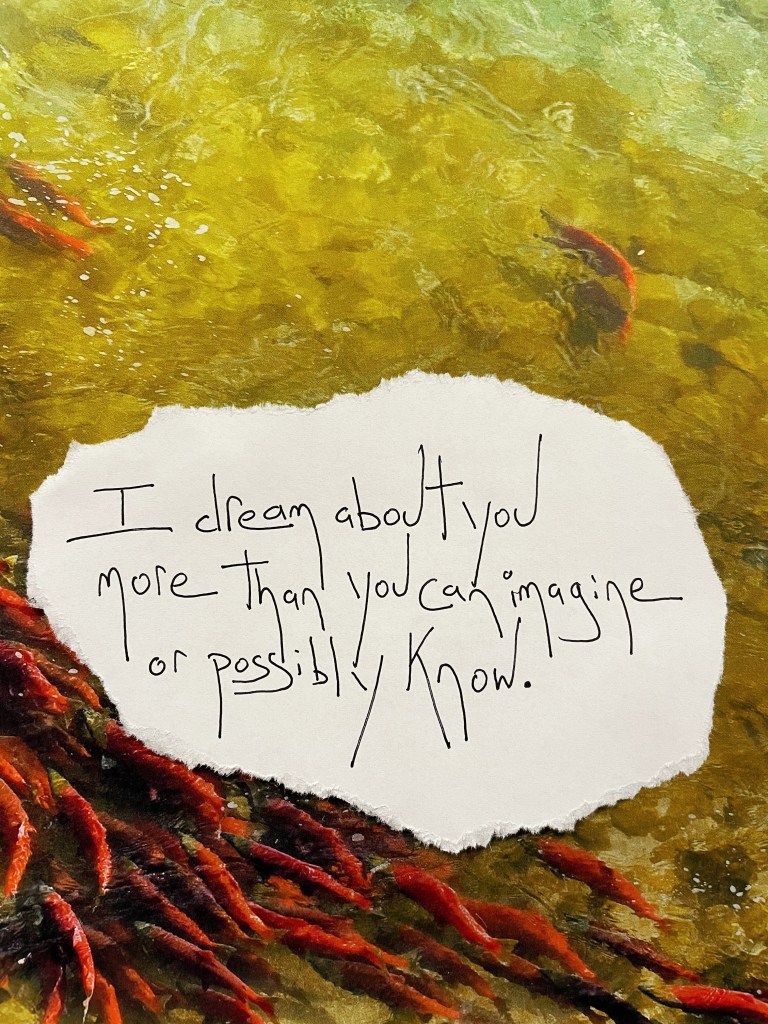 I dream about you
more than you can imagine
or possibly know.